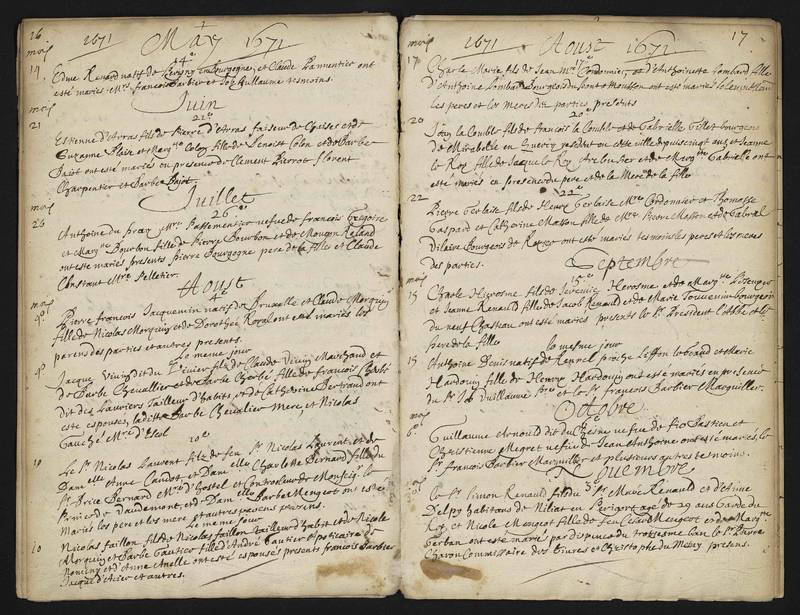 16
1671 May 1671
mary
14
14e
Edme Renard natif de en Bourgogne, et Claude Parmentier ont
esté mariés Mrs François Barbier et Joz Guillaume tesmoins.
Juin
mary
21e
21
Estienne d'Arras fils de Pierre d'Arras, faiseur de Chaises et de
Suzanne Blaise et Margte Colon fille de Benoist Colon et de Barbe
Pajot ont esté mariés en presence de Clement Pierrot, florent
Charpentier et Barbe Pajot
Juillet
mary
26e
26
Anthoine du pray Mre Passementier nefue de François Gregoire
et Margte Bourbon fille de Pierre Bourbon et de Mougon Roland
ont esté mariés presents Pierre Bourgogne pere de la fille et Claude
Constant Mre Pelletier
Aoust
mary
4e
Pierre françois Jacquemin natif de Bruxelle et Claude Morquiny
fille de Nicolas Morquiny et de Dorothée Royal ont esté mariés les
parens des parties et autres presents.
Le mesme jour
Jacque Viriy dit du fils de Claude Viriy Marchand et
de Barbe Chevallier et de Barbe Charbé fille de François Charbé
dit des Lauriers Tailleur d'habits et de Catherine Bertrand ont
esté espousés, ladite Barbe Chevalier mere et Nicolas
Gauché Mre d'Escol
10e
10
Le Sr Nicolas Laurent filz de feu Sr Nicolas Laurent, et de
Damelle Anne Caudot, et Damelle Charlotte Bernard fille du
Sr Brice Bernard Mre d'hostel et Controleur de Monseigr le
Prince de Vaudemont, et de Damelle Barbe Mengeot ont esté
Mariés les pere et les mere et autres parens presens.
Le mesme jour
10
Nicolas faillon fils de Nicolas faillon tailleur d'habit et de Nicole
Morquiny et Barbe Gautier fille d'André Gautier apoticaire de
Nomeny et d'Anne Anelle ont esté espousés presents françois Barbier
Jacque d'Acier et autres.
mary
1671 Aoust 1671
17
17
17e
Charle Marie fils de Jean Mre Cordonnier, et d'Anthoinette Lombard fille
d'Anthoine Lombard Bourgeois du Pont a Mousson ont esté mariés
les peres et les Meres des parties, presents
20e
20
Joseph la Comble fils de françois la Comble et de Gabrielle Gillet bourgeois
de Mirabelle en Quercy residant en ceste ville depuis cinq ans et Jeanne
le Roy fille de Jacque le Roy Arcbusier et de Margte Gabrielle ont
esté mariés en presence du pere et de la Mere de la fille
22e
22
Pierre Gerlaise fils de Henry Gerlaise Mre Cordonnier et Thomasse
Gaspard et Catherine Masson fille de Mre Pierre Masson et de Gabriel
Dilaire Bourgeois de Nancy ont esté mariés tesmoins les peres et les meres
des parties.
Septembre
mary
15e
15
Charle Hierosme fils de Jeremie Hierosme et de Margte
et Jeanne Renauld fille de Jacob Renauld et de Marie Touvenin bourgeois
du neuf Chasteau ont esté mariés presents le Sr President l'Abbé et le
frere de la fille
15
Le mesme jour
Anthoine Denis natif de proche Leffon le Grand et Marie
Hardouin fille de Henry Hardouin ont esté mariés en presence
du Sr Job Guillaume Pre et le Sr françois Barbier Marguiller.
Octobre
mary
6e
Guillaume Arnould dit du Chesne nefue de feu Bastien et
Chrestienne Megret nefue de Jean Anthoine ont esté mariés le
Sr françois Barbier Marguiller et plusieurs autres tesmoins.
Nouembre
mary
5e
Le Sr Simon Renauld fils du Sr Marc Renauld et d'Anne
Delpy habitans de Niliac en Perigort agé de 29 ans Garde du
Roy et Nicole Mengeot fille de feu Cesar Mengeot et de Margte
Gerban ont esté marié par dispence du troisesme ban le Sr Pierre
Charon Commissaire des Viures et Christophe du Mesny presens.